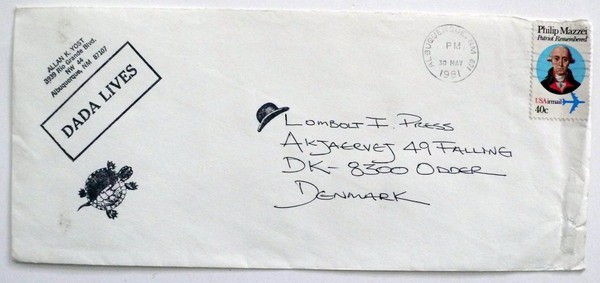 ALLAN K. YOST
3939 Rio Grande Blvd.
NW 44
Albuquerque, NM 87107
DADA LIVES
ALBUQUERQUE, NM 871
PM
30 MAY
1981
Philip Mazzei
Patriot Remembered
USAirmail
40c
LOMBOLT I. PRESS
AKJAERVEJ 49 FALLING
DK- 8300 ODDER
DENMARK